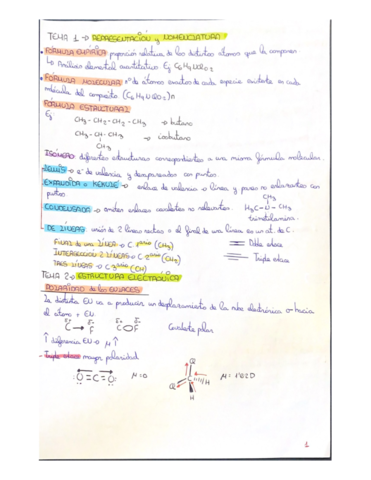 TEMA 1 → REPRESENTACIÓN y NOMENCLATURA
• FÓRMULA EMPÍRICA proporción relativa de los distintos átomos que la componen
↳ Análisis elemental cuantitativo Ej C6H4NO2
• FÓRMULA MOLECULAR nº de átomos exactos de cada especie existente en cada
molécula del compuesto. (C6H4NO2)n
FÓRMULA ESTRUCTURAL
Ej
CH3 - CH2 - CH2 - CH3 → butano
CH3 - CH - CH3 → isobutano
CH3
ISÓMERO diferentes estructuras correspondientes a una misma fórmula molecular.
LEWIS → e⁻ de valencia y desapareados con puntos.
EXPANDIDA o KEKULÉ → enlaces de valencia o línea, y pares no enlazantes con
puntos
CH3
CONDENSADA → omiten enlaces covalentes no relevantes. H3C - N - CH3
trimetilamina.
DE LÍNEAS unión de 2 líneas rectas o el final de una línea es un át. de C.
FINAL de una LÍNEA → C 1ario (CH3)
Doble enlace
INTERSECCIÓN 2 LÍNEAS → C 2ario (CH2)
TRES LÍNEAS → C 3ario (CH)
Triple enlace
TEMA 2 → ESTRUCTURA ELECTRÓNICA
POLARIDAD de los ENLACES
La distinta EN va a producir un desplazamiento de la nube electrónica → hacia
el átomo + EN
δ+ δ- δ+ δ-
C → F C F Covalente polar
↑ diferencia EN → μ ↑
- Triple enlace mayor polaridad
O = C = O μ=0
Cl
C
H
H
Cl
μ = 1'62D
1